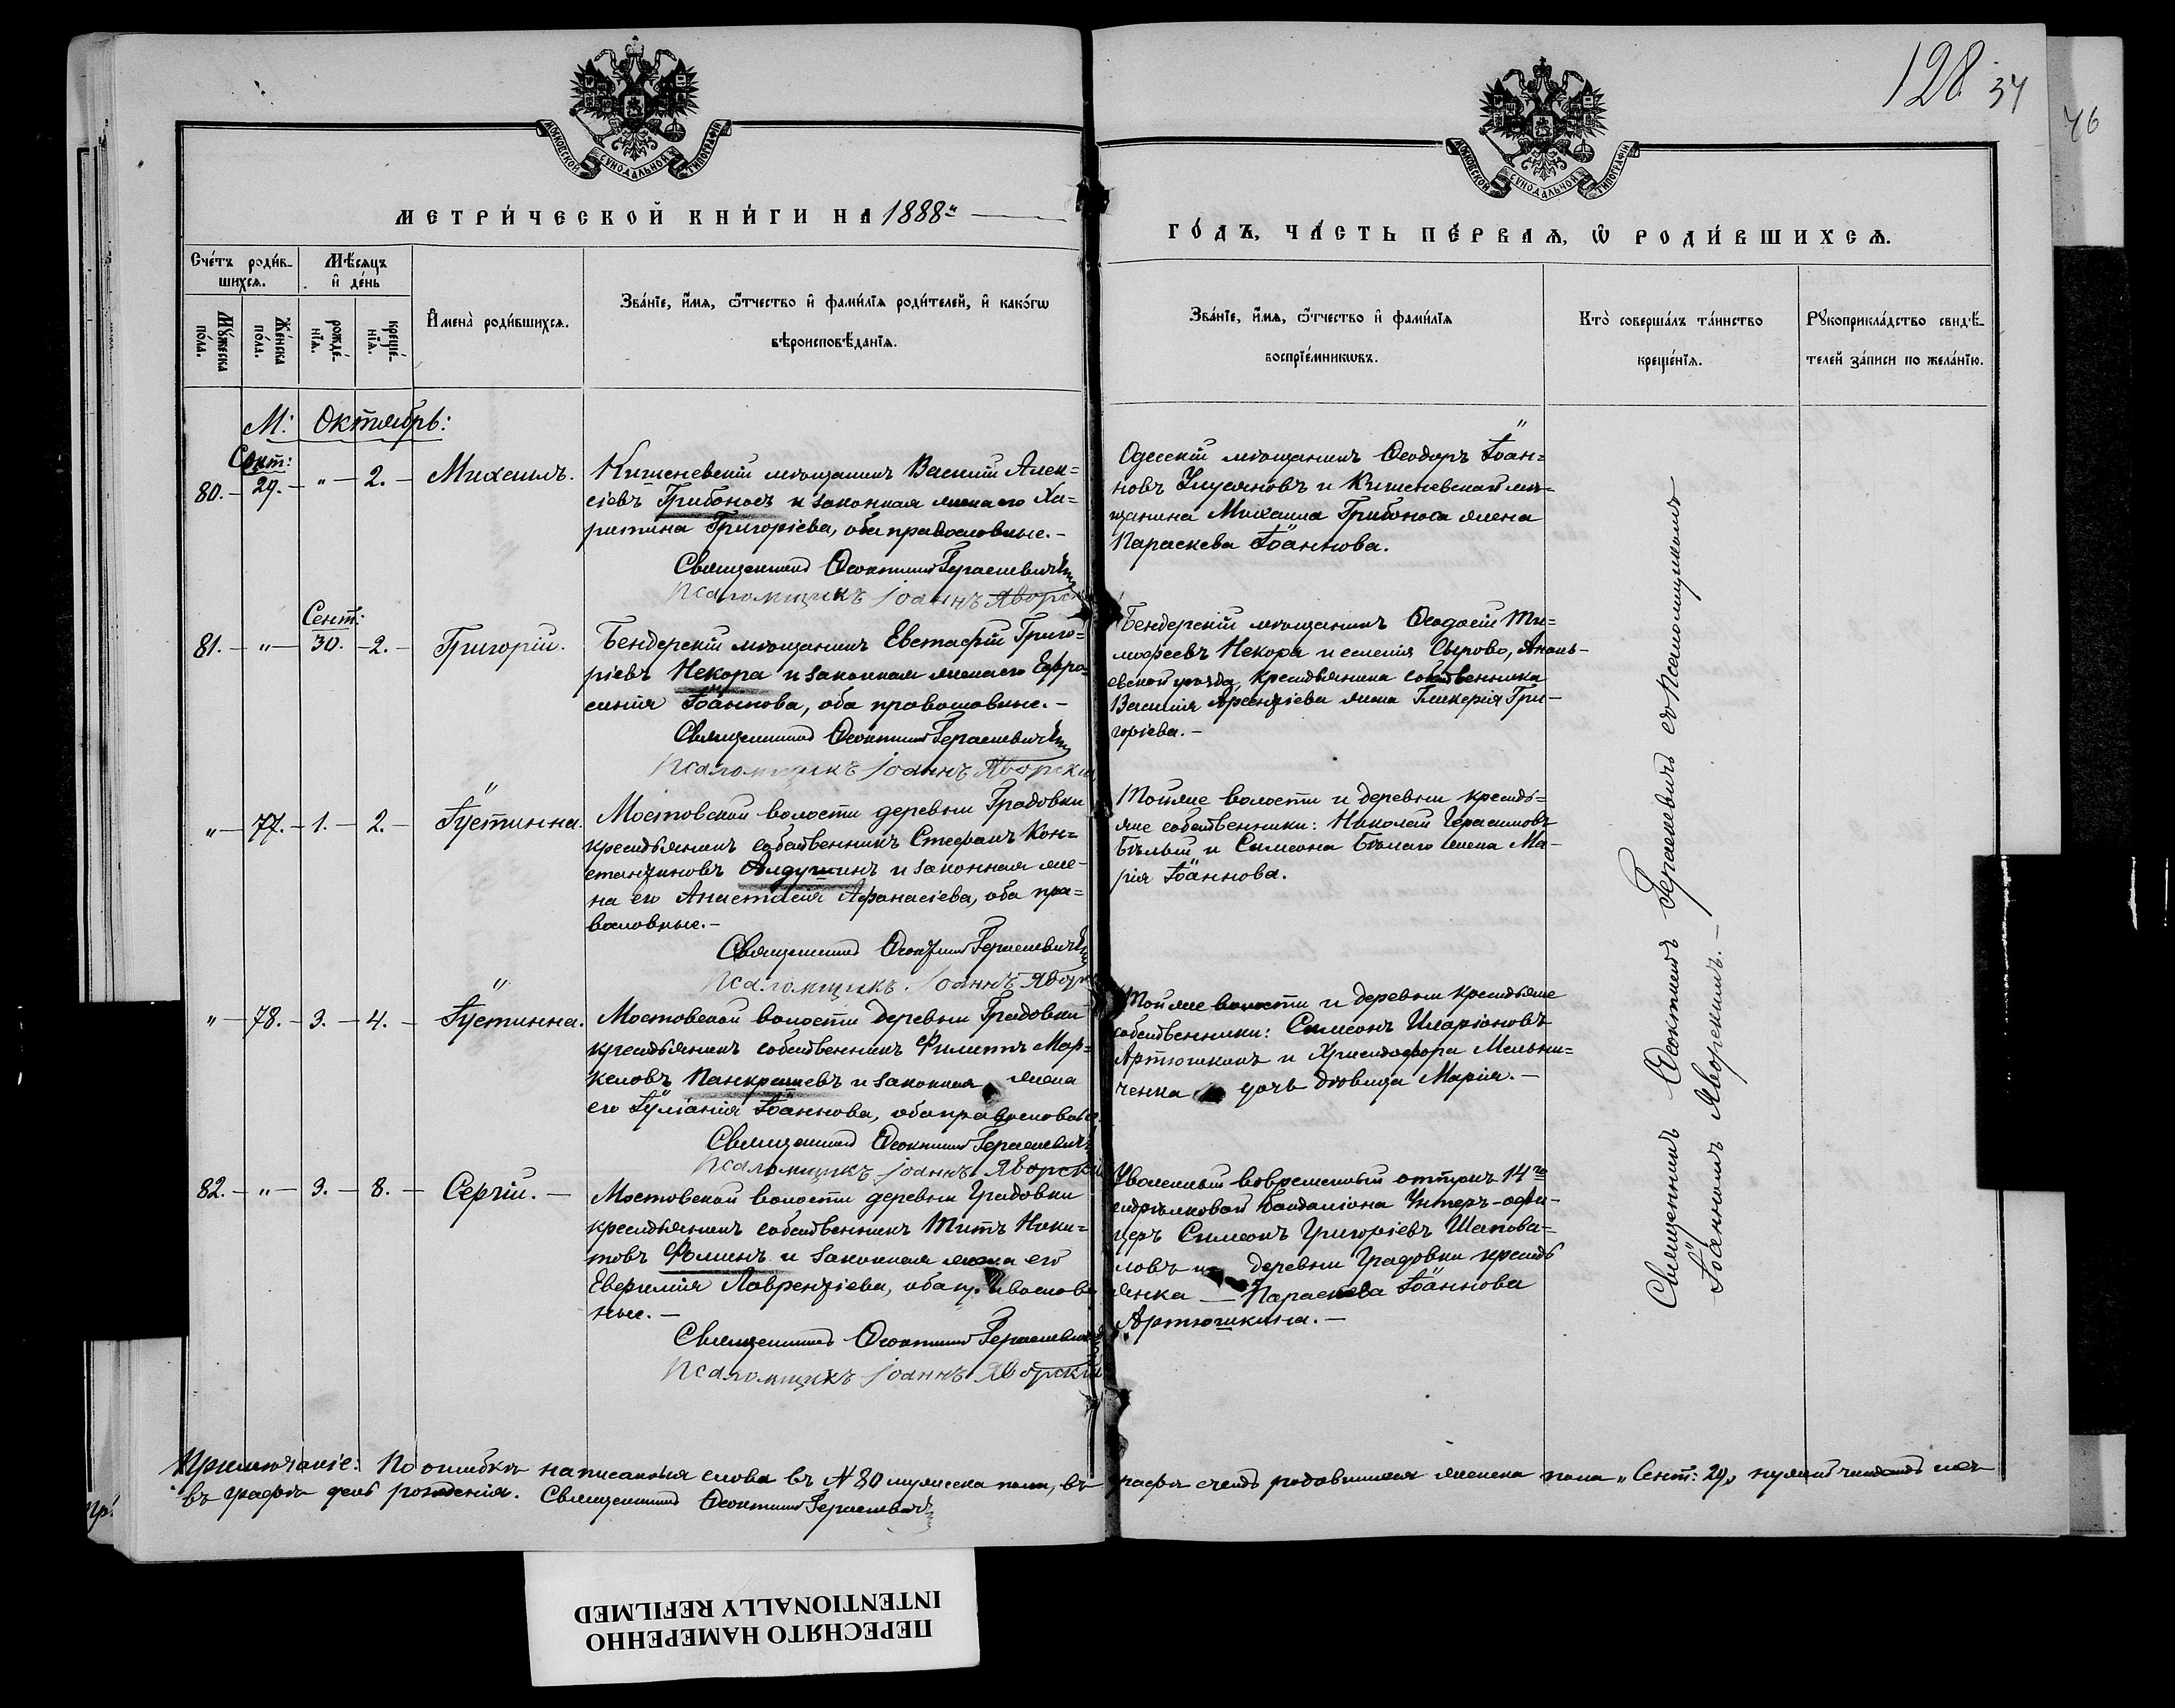 128 37
76
МОСКОВСКОЙ СѴНОДАЛЬНОЙ ТИПОГРАФІИ
МОСКОВСКОЙ СѴНОДАЛЬНОЙ ТИПОГРАФІИ
МЕТРИ́ЧЕСКОЙ КНИ́ГИ НА 1888й
ГО́ДЪ, ЧА́СТЬ ПЕ́РВАѦ, Ѽ РОДИ́ВШИХСѦ.
Сче́тъ роди́в-
шихсѧ.
Мѣ́сѧцъ
и҆ де́нь
Му́жеска по́ла.
Же́нска по́ла.
рожде́-
нїѧ.
креще́-
нїѧ.
И҆мена̀ роди́вшихсѧ.
Зва́нїе, и҆́мѧ, ѻ҆́тчество и҆ фами́лїѧ роди́телей, и҆ како́гѡ
вѣроисповѣ́данїѧ.
Зва́нїе, и҆́мѧ, ѻ҆́тчество и҆ фами́лїѧ
воспрїе́мникѡвъ.
Кто̀ соверша́лъ та́инство
креще́нїѧ.
Рꙋкоприкла́дство свидѣ́-
телей за́писи по жела́нїю.
М: Октябрь:
Сент:
80. — 29. — " — 2. — Михаилъ.
Кишеневскій мѣщанинъ Василій Алек=
сіевъ Грибоносъ и законная жена его Ха=
ритина Григоріева, оба православные. —
Священникъ Ѳеоктистъ Герасевичъ
Псаломщикъ Іоаннъ Яворскій
Одесскій мѣщанинъ Ѳеодоръ Іоан=
новъ и Кишеневскаго мѣ-
щанина Михаила Грибоноса жена
Параскева Іоаннова.
Сент:
81. — " — 30. — 2. — Григорій.
Бендерскій мѣщанинъ Евстафій Григо=
ріевъ Некора и законная жена его Ефро=
синія Іоаннова, оба православные. —
Священникъ Ѳеоктистъ Герасевичъ
Псаломщикъ Іоаннъ Яворскій
Бендерскій мѣщанинъ Ѳеодосій Ти=
моѳеевъ Некора и селенія Сырово, Анань-
евскаго уѣзда, крестьянина собственника
Василія Арсентіева жена Гликерія Гри-
горіева. —
" — 77. — 1. — 2. — Іустинна.
Мостовской волости деревни Градовки
крестьянинъ собственникъ Стефанъ Кон=
стантиновъ Алдушинъ и законная же-
на его Анастасія Афанасіева, оба пра=
вославные. —
Священникъ Ѳеоктистъ Герасевичъ
Псаломщикъ Іоаннъ Яворскій
Той же волости и деревни крестья=
не собственники: Николай Герасимовъ
Бѣлый и Симеона Бѣлаго жена Ма-
рія Іоаннова.
" — 78. — 3. — 4. — Іустинна.
Мостовской волости деревни Градовки
крестьянинъ собственникъ Филиппъ Мар=
келовъ Панкратьевъ и законная жена
его Іуліанія Іоаннова, оба православные.
Священникъ Ѳеоктистъ Герасевичъ
Псаломщикъ Іоаннъ Яворскій
Той же волости и деревни крестьяне
собственники: Симеонъ Иларіоновъ
Артюшкинъ и Христофора Мельни=
ченка дочь дѣвица Марія. —
82. — " — 3. — 8. — Сергій. —
Мостовской волости деревни Градовки
крестьянинъ собственникъ Титъ Ники=
товъ Фоминъ и законная жена его
Евфимія Лаврентіева, оба православ
ные. —
Священникъ Ѳеоктистъ Герасевичъ
Псаломщикъ Іоаннъ Яворскій
Уволенный вовременный отпускъ 14го
стрѣлковаго Баталіона Унтеръ-офи-
церъ Симеонъ Григоріевъ Шапова-
ловъ и деревни Градовки крестья
янка — Параскева Іоаннова
Артюшкина. —
Священникъ Ѳеоктистъ Герасевичъ съ псаломщикомъ
Іоанномъ Яворскимъ. —
Примѣчаніе: По ошибкѣ написанныя слова въ № 80 мужеска пола, въ графѣ счетъ родившихся женска пола „Сент: 29„ нужно читать ихъ
въ графѣ день рожденія. Священникъ Ѳеоктистъ Герасевичъ
ПЕРЕСНЯТО НАМЕРЕННО
INTENTIONALLY REFILMED